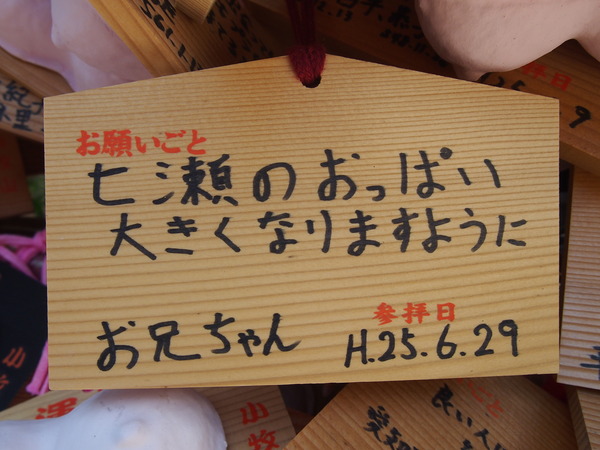 お願いごと
七瀬のおっぱい
大きくなりますように
参拝日
お兄ちゃん
H.25.6.29
小牧